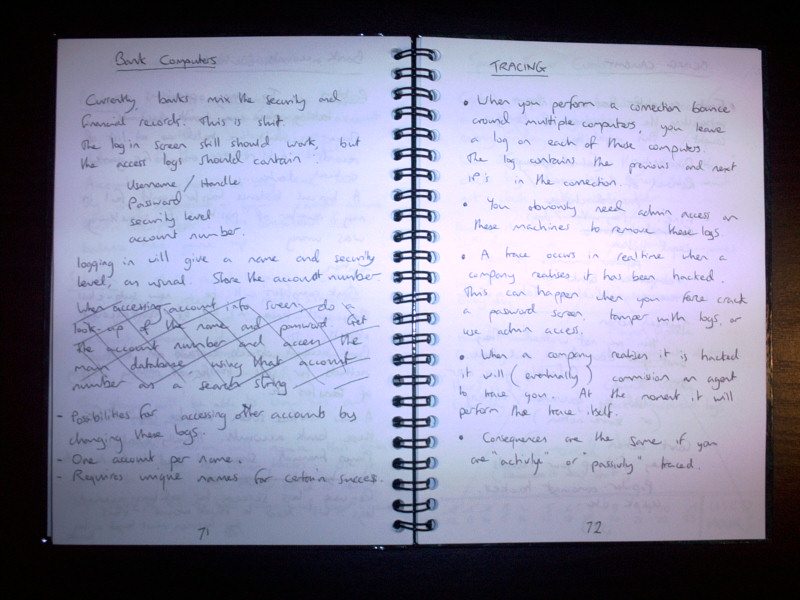 Bank Computers
Currently, banks mix the security and
financial records. This is shit.
The log in screen still should work, but
the access logs should contain
Username / Handle
Password
security level
account number.
logging in will give a name and security
level, as usual. Store the account number
When accessing account info screen do a
look-up of the name and password. Get
the account number and access the
main database, using that account
number as a search string
- Posibilities for accessing other accounts by
changing these logs.
- One account per name.
- Requires unique names for certain succes.
71
TRACING
• When you perform a connection bounce
around multiple computers, you leave
a log on each of those computers.
The log contains the previous and next
IP's in the connection.
• You obviously need admin access on
these machines to remove these logs.
• A trace occurs in real time when a
company realises it has been hacked.
This can happen when you force crack
a password screen, tamper with logs, or
use admin access.
• When a company realises it is hacked
it will (eventually) commision an agent
to trace you. At the moment it will
perform the trace itself.
• Consequences are the same if you
are "activly" or "passivly" traced.
72